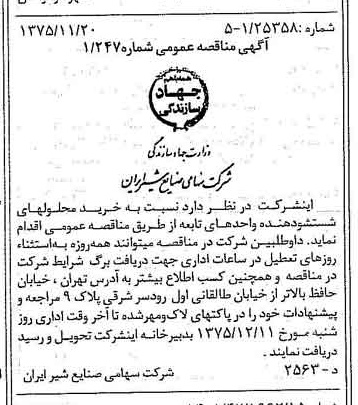 شماره :۵-۱/۲۵۳۵۸ ۱۳۷۵/۱۱/۲۰
آگهی مناقصه عمومی شماره۱/۲۴۷
همه با هم
جهاد
سازندگی
وزارت جهاد سازندگی
شرکت سهامی صنایع شیر ایران
اینشرکت در نظر دارد نسبت به خرید محلولهای
شستشودهنده واحدهای تابعه از طریق مناقصه عمومی اقدام
نماید. داوطلبین شرکت در مناقصه میتوانند همه‌روزه به‌استثناء
روزهای تعطیل در ساعات اداری جهت دریافت برگ شرایط شرکت
در مناقصه و همچنین کسب اطلاع بیشتر به آدرس تهران ، خیابان
حافظ بالاتر از خیابان طالقانی اول رودسر شرقی پلاک ۹ مراجعه و
پیشنهادات خود را در پاکتهای لاک‌ومهرشده تا آخر وقت اداری روز
شنبه مورخ ۱۳۷۵/۱۲/۱۱ بدبیرخانه اینشرکت تحویل و رسید
دریافت نمایند .
د - ۲۵۶۳ شرکت سهامی صنایع شیر ایران